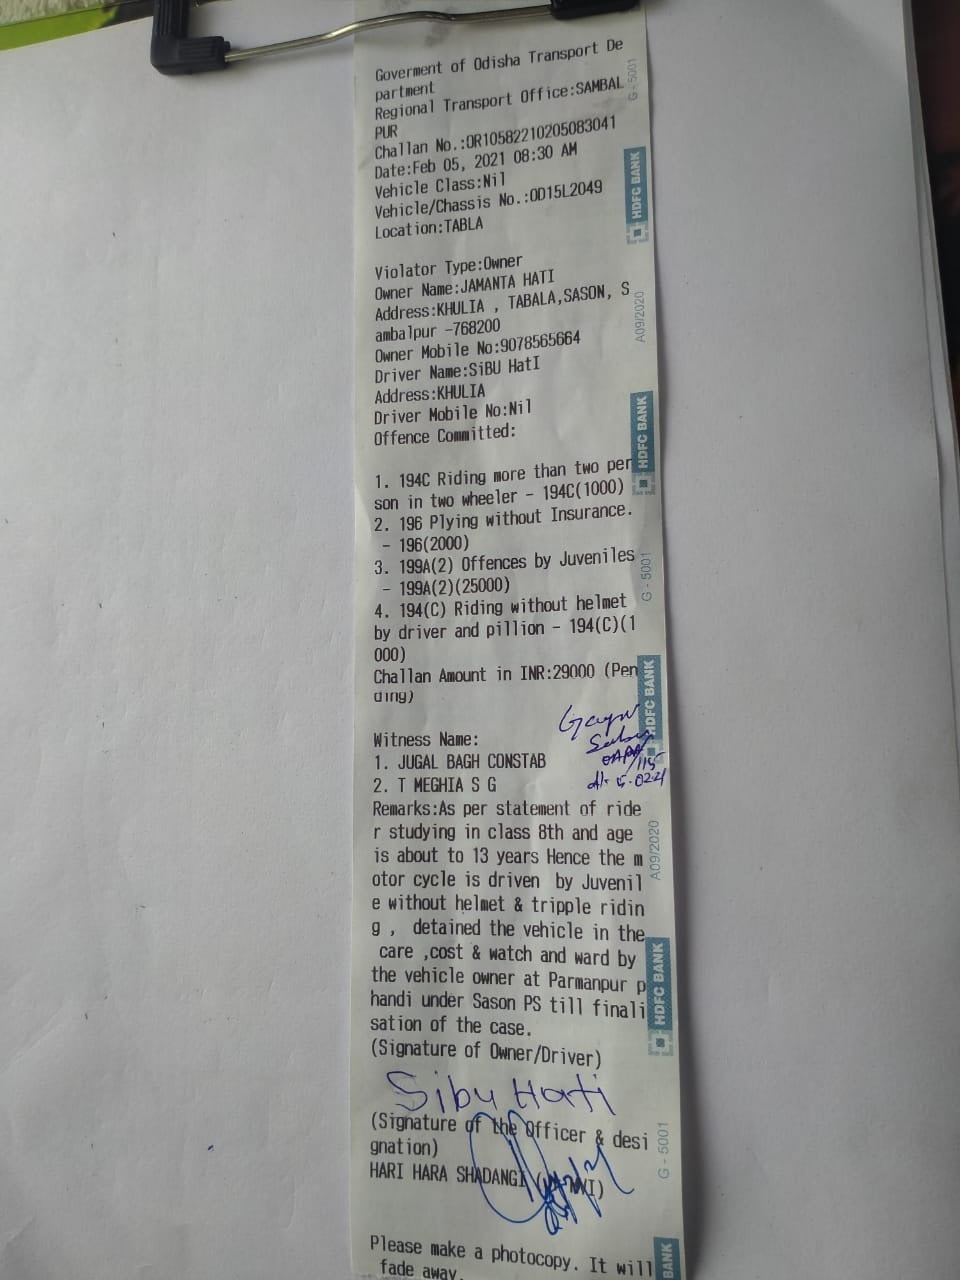 Goverment of Odisha Transport De
partment
Regional Transport Office:SAMBAL
PUR
Challan No.:OR10582210205083041
Date:Feb 05, 2021 08:30 AM
Vehicle Class:Nil
Vehicle/Chassis No.:OD15L2049
Location:TABLA
Violator Type:Owner
Owner Name:JAMANTA HATI
Address:KHULIA , TABALA,SASON, S
ambalpur -768200
Owner Mobile No:9078565664
Driver Name:SiBU HatI
Address:KHULIA
Driver Mobile No:Nil
Offence Committed:
1. 194C Riding more than two per
son in two wheeler - 194C(1000)
2. 196 Plying without Insurance.
- 196(2000)
3. 199A(2) Offences by Juveniles
- 199A(2)(25000)
4. 194(C) Riding without helmet
by driver and pillion - 194(C)(1
000)
Challan Amount in INR:29000 (Pen
ding)
Witness Name:
1. JUGAL BAGH CONSTAB
2. T MEGHIA S G
Remarks:As per statement of ride
r studying in class 8th and age
is about to 13 years Hence the m
otor cycle is driven by Juvenil
e without helmet & tripple ridin
g , detained the vehicle in the
care ,cost & watch and ward by
the vehicle owner at Parmanpur p
handi under Sason PS till finali
sation of the case.
(Signature of Owner/Driver)
Sibu Hati
(Signature of the Officer & desi
gnation)
HARI HARA SHADANGI
Please make a photocopy. It will
fade away.
G - 5001
HDFC BANK
A09/2020
HDFC BANK
G - 5001
HDFC BANK
A09/2020
HDFC BANK
G - 5001
BANK